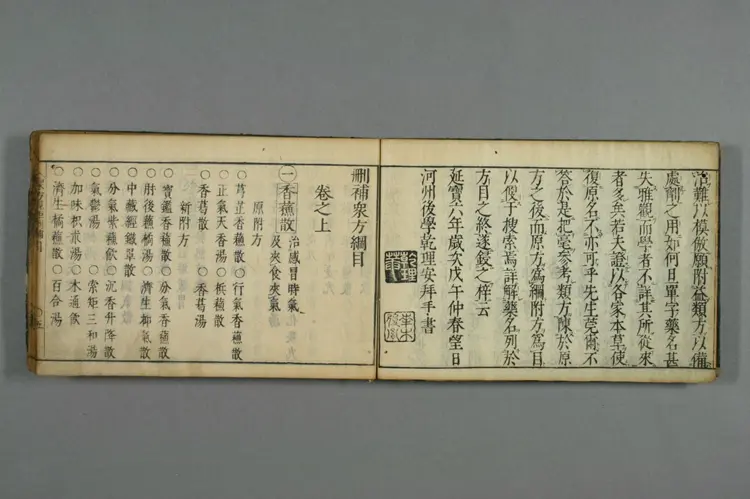 治難以模倣願附益類方以備
處劑之用如何曰單字藥名甚
失雅觀而學者不詳其所從來
者多矣若夫證以各家本草使
復原名不亦可乎先生莞爾不
答於是把毫參考類方陳於原
方之後而原方為綱附方為目
以便于搜索焉詳解藥名列於
方目之終遂鋟之梓云
延寶六年歲次戊午仲春望日
河州後學乾理安拜手書
刪補衆方綱目
卷之上
一 香蘓散 治感冒時氣
及夾食夾氣
原附方
○芎芷香蘓散 ○行氣香蘓散
○正氣天香湯 ○梔蘓散
○香葛散 ○香葛湯
新附方
○寶鑑香蘓散 ○分氣香蘓散
○肘後蘓橘湯 ○濟生柳氣散
○中藏經鐵罩散
○分氣紫蘓飲 ○沉香升降散
○氣鬱湯 ○索矩三和湯
○加味枳朮湯 ○木通飲
○濟生橘蘓散 ○百合湯